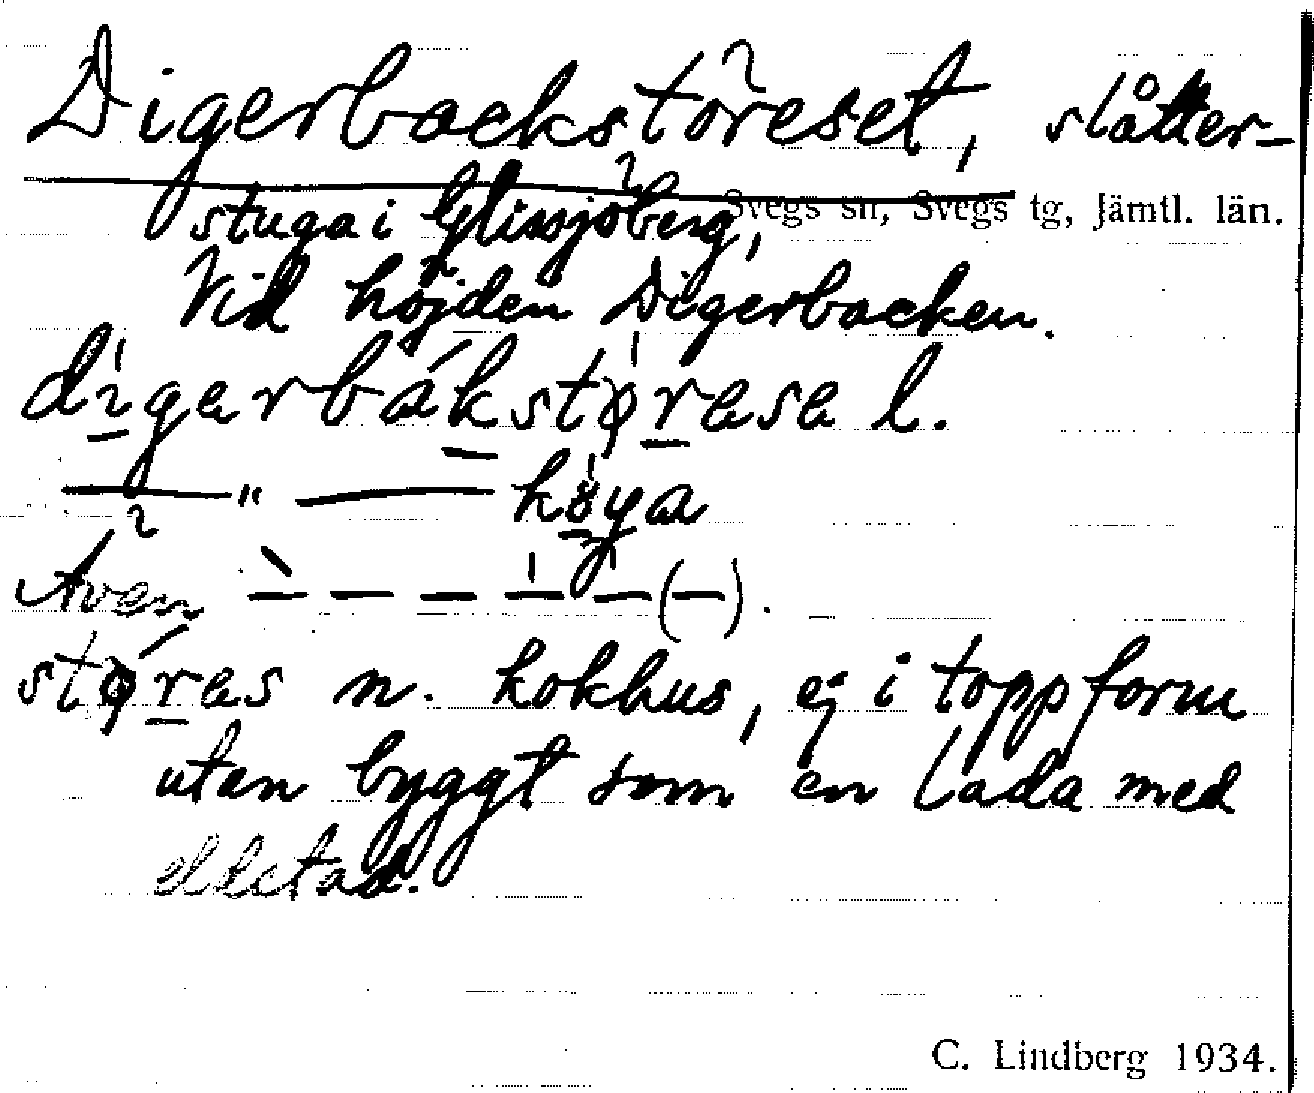 Digerbackstöreset, slåtter-
Svegs sn, Svegs tg, Jämtl. län.
stuga i Glissjöberg,
Vid höjden Digerbacken.
digerbákstørase l.
— " — høya
Även — — — — — (—).
støras n. kokhus, ej i toppform
utan byggt som en lada med
eldstad.
C. Lindberg 1934.